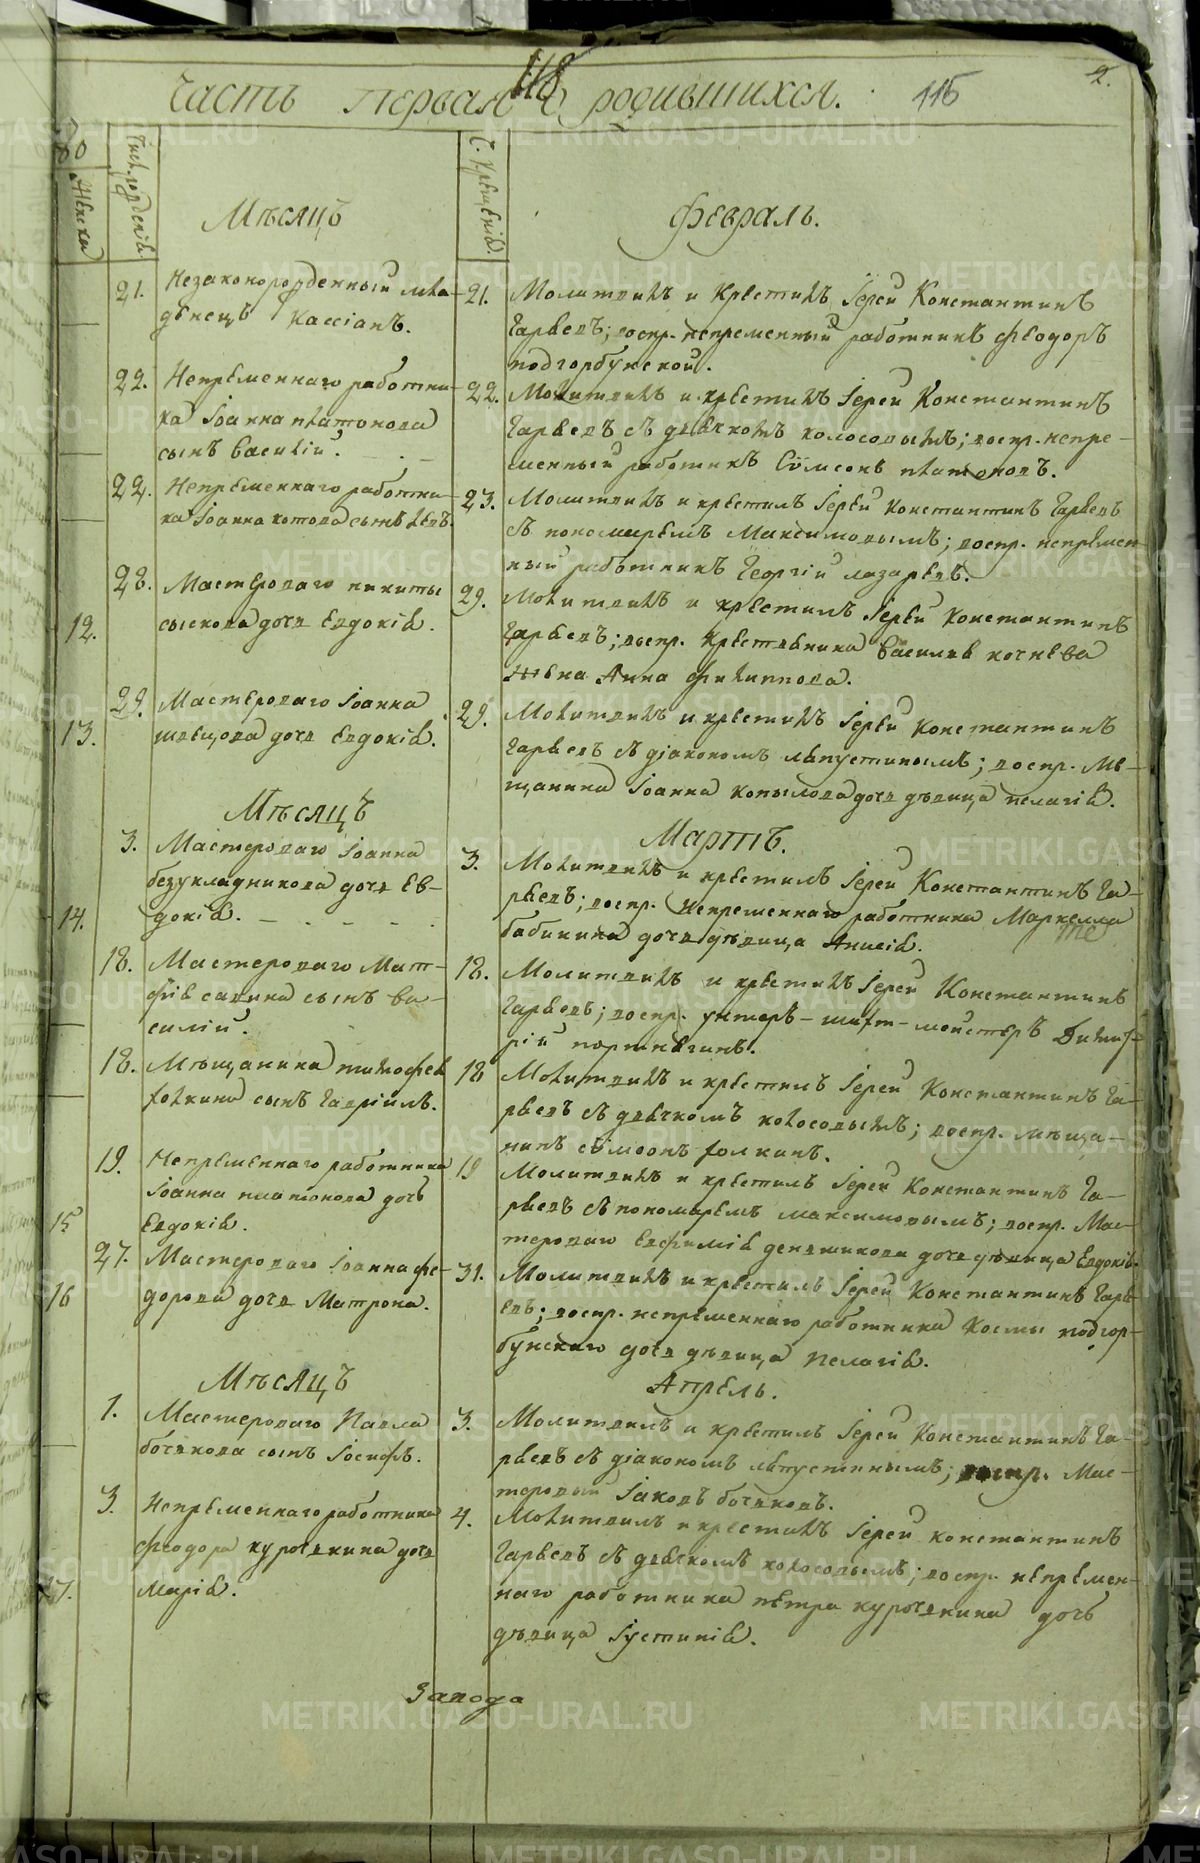 118
Часть Первая О родившихся.
115
2.
Женска
Числ. рожденія
Ч. Крещенія.
Мѣсяцъ
Февраль.
21. Незаконорожденный мла-
денецъ Кассіанъ.
21. Молитвилъ и крестилъ Іерей Константинъ
Гаряевъ; воспр. непременный работникъ Феодоръ
подгорбунской.
22. Непременнаго работни-
ка Іоанна платонова
сынъ Василій.
22. Молитвилъ и крестилъ Іерей Константинъ
Гаряевъ съ дьячкомъ колосовымъ; воспр. непре-
менный работникъ Сѵмеонъ платоновъ.
22. Непременнаго работни-
ка Іоанна котова сынъ Левъ.
23. Молитвилъ и крестилъ Іерей Константинъ Гаряевъ
съ пономаремъ Максимовымъ; воспр. непремен-
ный работникъ Георгій лазаревъ.
28. Мастероваго никиты
сыскова дочь Евдокія.
12.
29. Молитвилъ и крестилъ Іерей Константинъ
Гаряевъ; воспр. Крестьянина Василья кочнева
жена Анна филиппова.
29. Мастероваго Іоанна
швецова дочь Евдокія.
13.
29. Молитвилъ и крестилъ Іерей Константинъ
Гаряевъ съ діакономъ ляпустинымъ; воспр. Мѣ-
щанина Іоанна копылова дочь дѣвица пелагія.
Мѣсяцъ
Мартъ.
3. Мастероваго Іоанна
безукладникова дочь Ев-
докія.
14.
3. Молитвилъ и крестилъ Іерей Константинъ Га-
ряевъ; воспр. Непременнаго работника Маркелла
бабикина дочь дѣвица Анисія.
18. Мастероваго Мат-
фія савина сынъ Ва-
силій.
18. Молитвилъ и крестилъ Іерей Константинъ
Гаряевъ; воспр. унтеръ-шихт-мейстеръ Димит-
рій портнягинъ.
18. Мѣщанина тимофея
фолкина сынъ Гавріилъ.
18 Молитвилъ и крестилъ Іерей Константинъ Га-
ряевъ съ дьячкомъ колосовымъ; воспр. мѣща-
нинъ сѵмеонъ фолкинъ.
19. Непременнаго работника
Іоанна платонова дочь
Евдокія.
15
19 Молитвилъ и крестилъ Іерей Константинъ Га-
ряевъ съ пономаремъ максимовымъ; воспр. Мас-
тероваго Евфимія денщикова дочь дѣвица Евдокія.
27. Мастероваго Іоанна фе-
дорова дочь Матрона.
16
31. Молитвилъ и крестилъ Іерей Константинъ Гаря-
евъ; воспр. непременнаго работника Космы подгор-
бунскаго дочь дѣвица Пелагія.
Мѣсяцъ
Апрель.
1. Мастероваго Павла
бочкова сынъ Іосифъ.
3. Молитвилъ и крестилъ Іерей Константинъ Га-
ряевъ съ діакономъ ляпустинымъ; воспр. Мас-
теровый Іаковъ бочковъ.
3. Непременнаго работника
феодора курочкина дочь
Марія.
17.
4. Молитвилъ и крестилъ Іерей Константинъ
Гаряевъ съ дьячкомъ колосовымъ; воспр. непремен-
наго работника петра курочкина дочь
дѣвица Іустинія.
Завода
METRIKI.GASO-URAL.RU